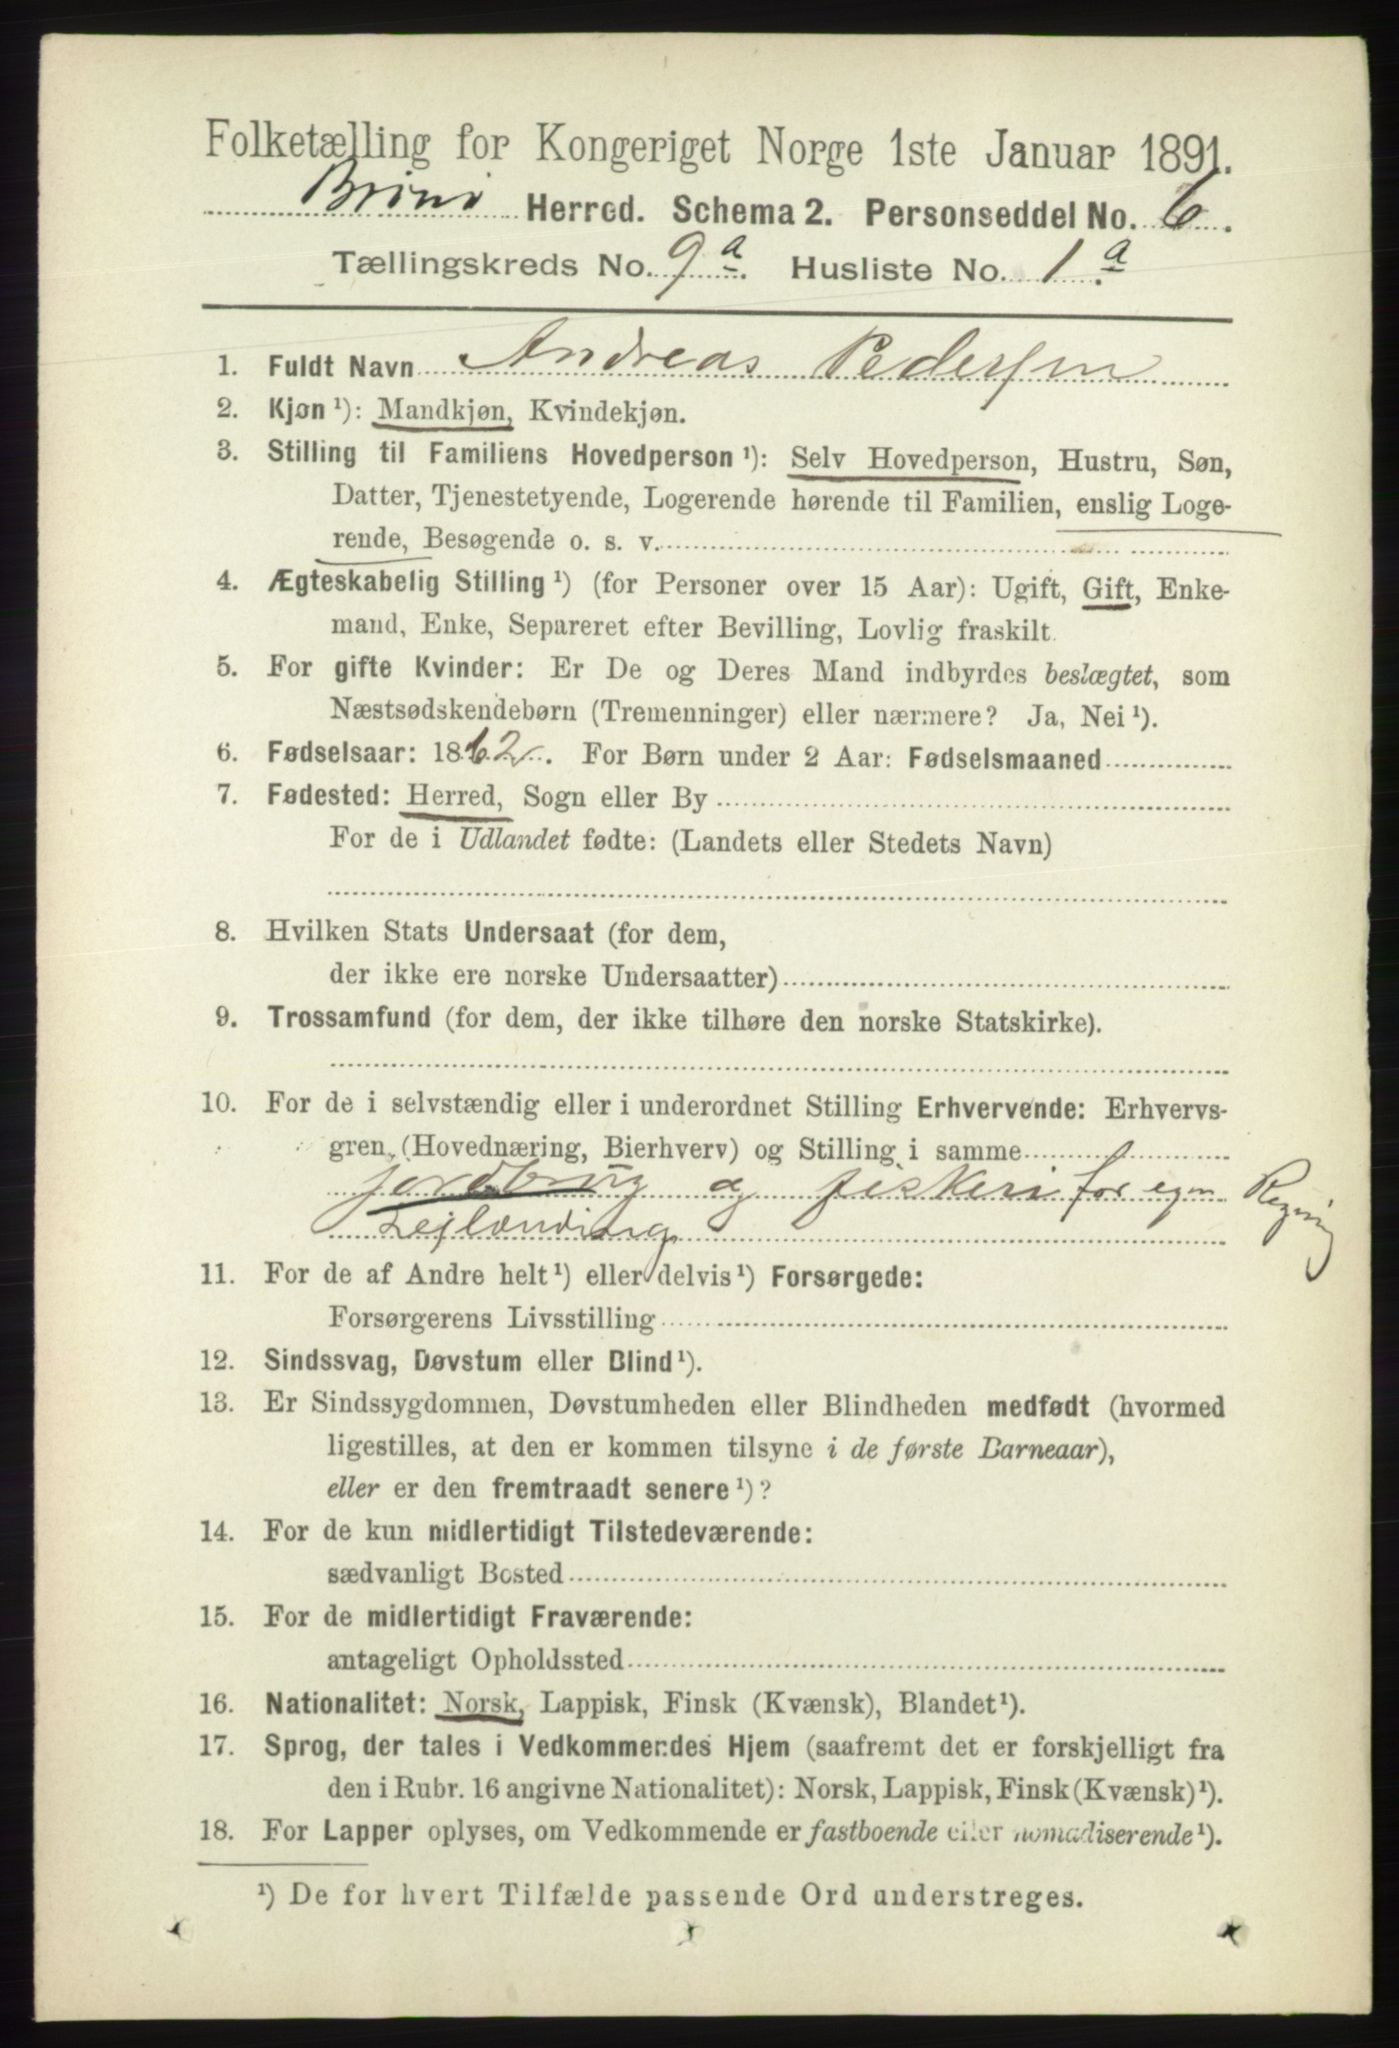 Folketælling for Kongeriget Norge 1ste Januar 1891.
Herred. Schema 2. Personseddel No. 6.
Tællingskreds No. 9 a. Husliste No. 1 a.
1. Fuldt Navn Andreas Pedersen
2. Kjøn ¹): Mandkjøn, Kvindekjøn.
3. Stilling til Familiens Hovedperson ¹): Selv Hovedperson, Hustru, Søn,
Datter, Tjenestetyende, Logerende hørende til Familien, enslig Loge-
rende, Besøgende o. s. v.
4. Ægteskabelig Stilling ¹) (for Personer over 15 Aar): Ugift, Gift, Enke-
mand, Enke, Separeret efter Bevilling, Lovlig fraskilt.
5. For gifte Kvinder: Er De og Deres Mand indbyrdes beslægtet, som
Næstsødskendebørn (Tremenninger) eller nærmere? Ja, Nei ¹).
6. Fødselsaar: 1862. For Børn under 2 Aar: Fødselsmaaned
7. Fødested: Herred, Sogn eller By
For de i Udlandet fødte: (Landets eller Stedets Navn)
8. Hvilken Stats Undersaat (for dem,
der ikke ere norske Undersaatter)
9. Trossamfund (for dem, der ikke tilhøre den norske Statskirke).
10. For de i selvstændig eller i underordnet Stilling Erhvervende: Erhvervs-
gren (Hovednæring, Bierhverv) og Stilling i samme
jordbrug og fiskeri for egen Regning
Lejlænding
11. For de af Andre helt ¹) eller delvis ¹) Forsørgede:
Forsørgerens Livsstilling
12. Sindssvag, Døvstum eller Blind ¹).
13. Er Sindssygdommen, Døvstumheden eller Blindheden medfødt (hvormed
ligestilles, at den er kommen tilsyne i de første Barneaar),
eller er den fremtraadt senere ¹)?
14. For de kun midlertidigt Tilstedeværende:
sædvanligt Bosted
15. For de midlertidigt Fraværende:
antageligt Opholdssted
16. Nationalitet: Norsk, Lappisk, Finsk (Kvænsk), Blandet ¹).
17. Sprog, der tales i Vedkommendes Hjem (saafremt det er forskjelligt fra
den i Rubr. 16 angivne Nationalitet): Norsk, Lappisk, Finsk (Kvænsk) ¹).
18. For Lapper oplyses, om Vedkommende er fastboende eller nomadiserende ¹).
¹) De for hvert Tilfælde passende Ord understreges.